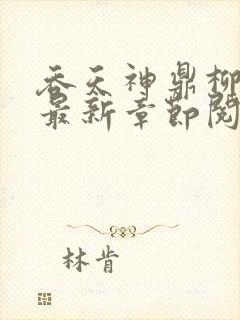 吞天神鼎柳
最新章節閱
林肯